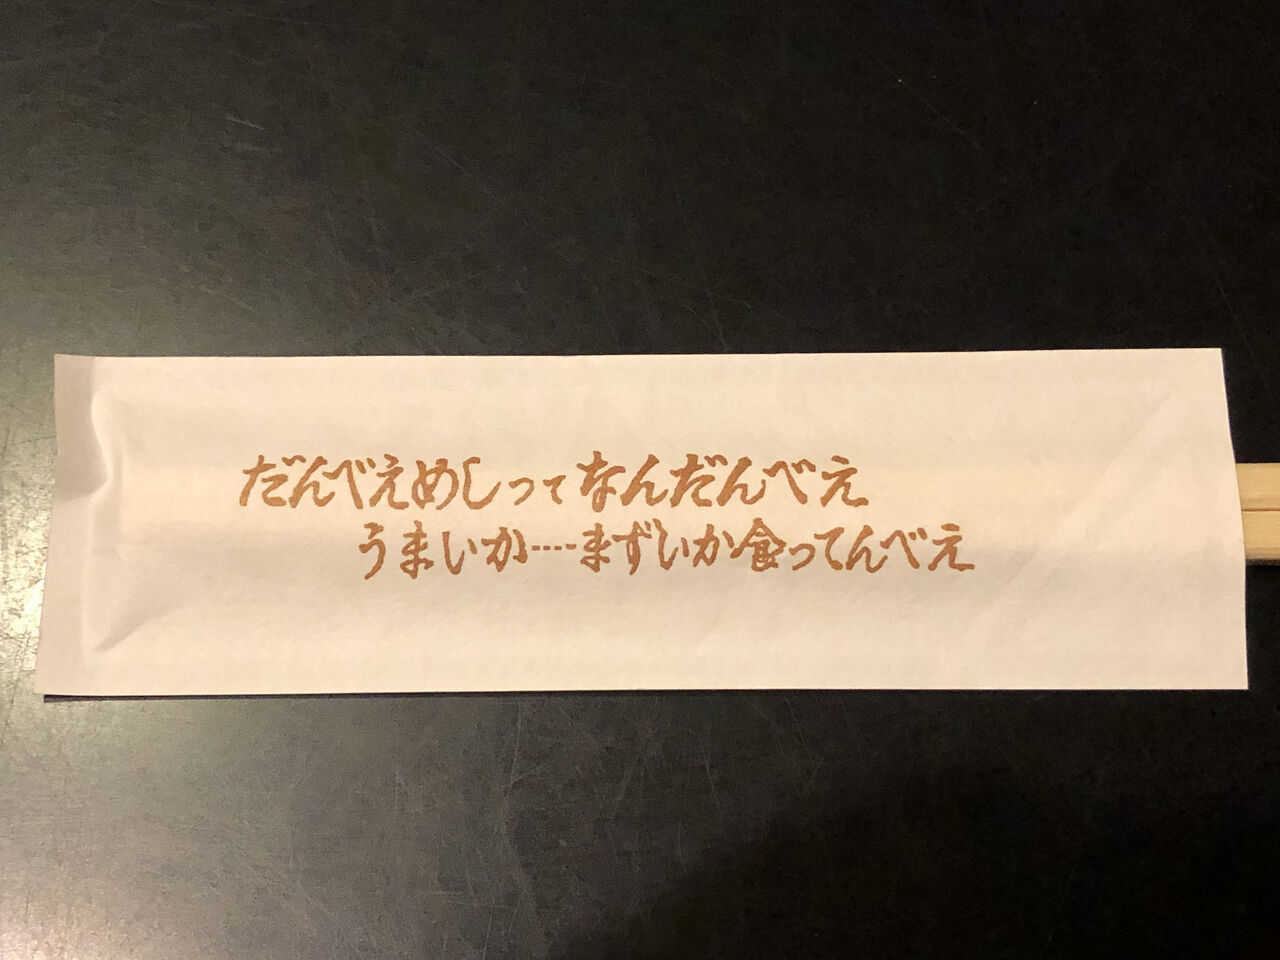 だんべえめしってなんだんべえ
うまいか‥‥まずいか食ってんべえ